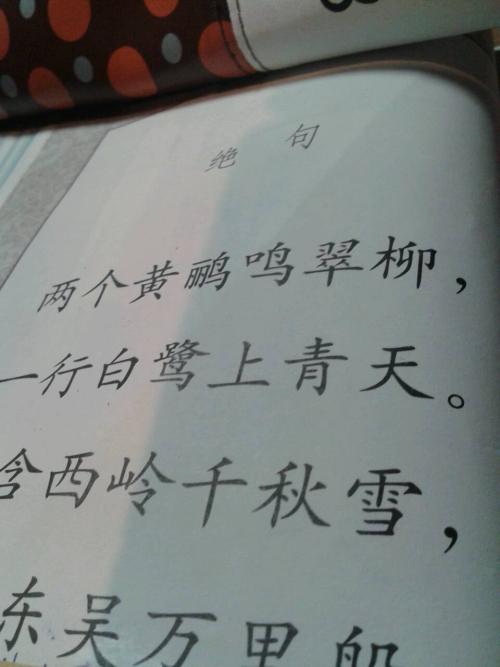 绝句
两个黄鹂鸣翠柳，
一行白鹭上青天。
含西岭千秋雪，
东吴万里船